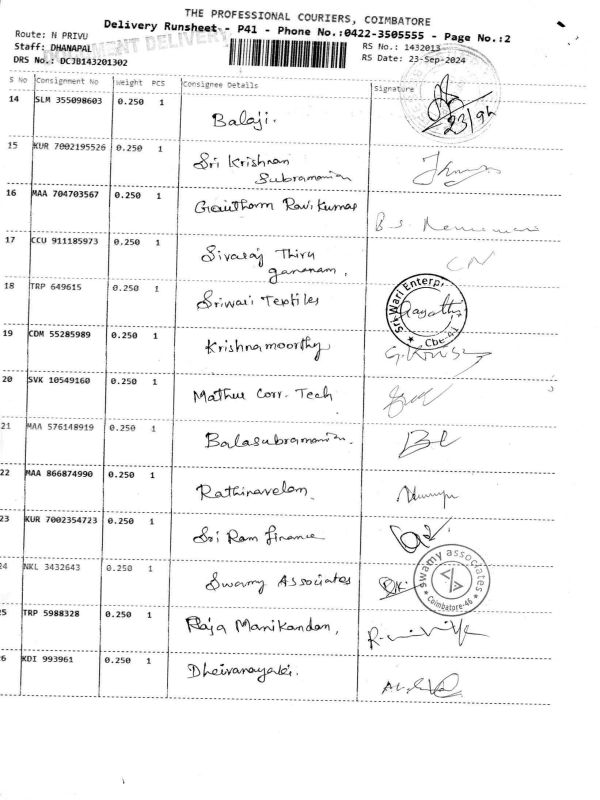 THE PROFESSIONAL COURIERS, COIMBATORE
Delivery Runsheet - P41 - Phone No.:0422-3505555 - Page No.:2
Route: N PRIVU
Staff: DHANAPAL
DRS No.: DCJB143201302
DOCUMENT DELIVERY
RS No.: 1432013
RS Date: 23-Sep-2024
S No Consignment No Weight PCS Consignee Details Signature
14 SLM 355098603 0.250 1 Balaji.
23/9/
15 KUR 7002195526 0.250 1 Sri Krishnan
Subramanian
16 MAA 704703567 0.250 1 Gautham Ravikumar
B.S.
17 CCU 911185973 0.250 1 Sivaraj Thiru
gananam.
CN
18 TRP 649615 0.250 1 Sriwari Textiles
Sri Wari Enterpr
Cbe-41
19 CDM 55285989 0.250 1 Krishnamoorthy
20 SVK 10549160 0.250 1 Mathu Corr. Tech
21 MAA 576148919 0.250 1 Balasubramanian.
22 MAA 866874990 0.250 1 Rathinavelam.
23 KUR 7002354723 0.250 1 Sri Ram finance
24 NKL 3432643 0.250 1 Swamy Associates
swamy associates
Coimbatore-46
25 TRP 5988328 0.250 1 Raja Manikandan,
26 KDI 993961 0.250 1 Dheivanayaki.